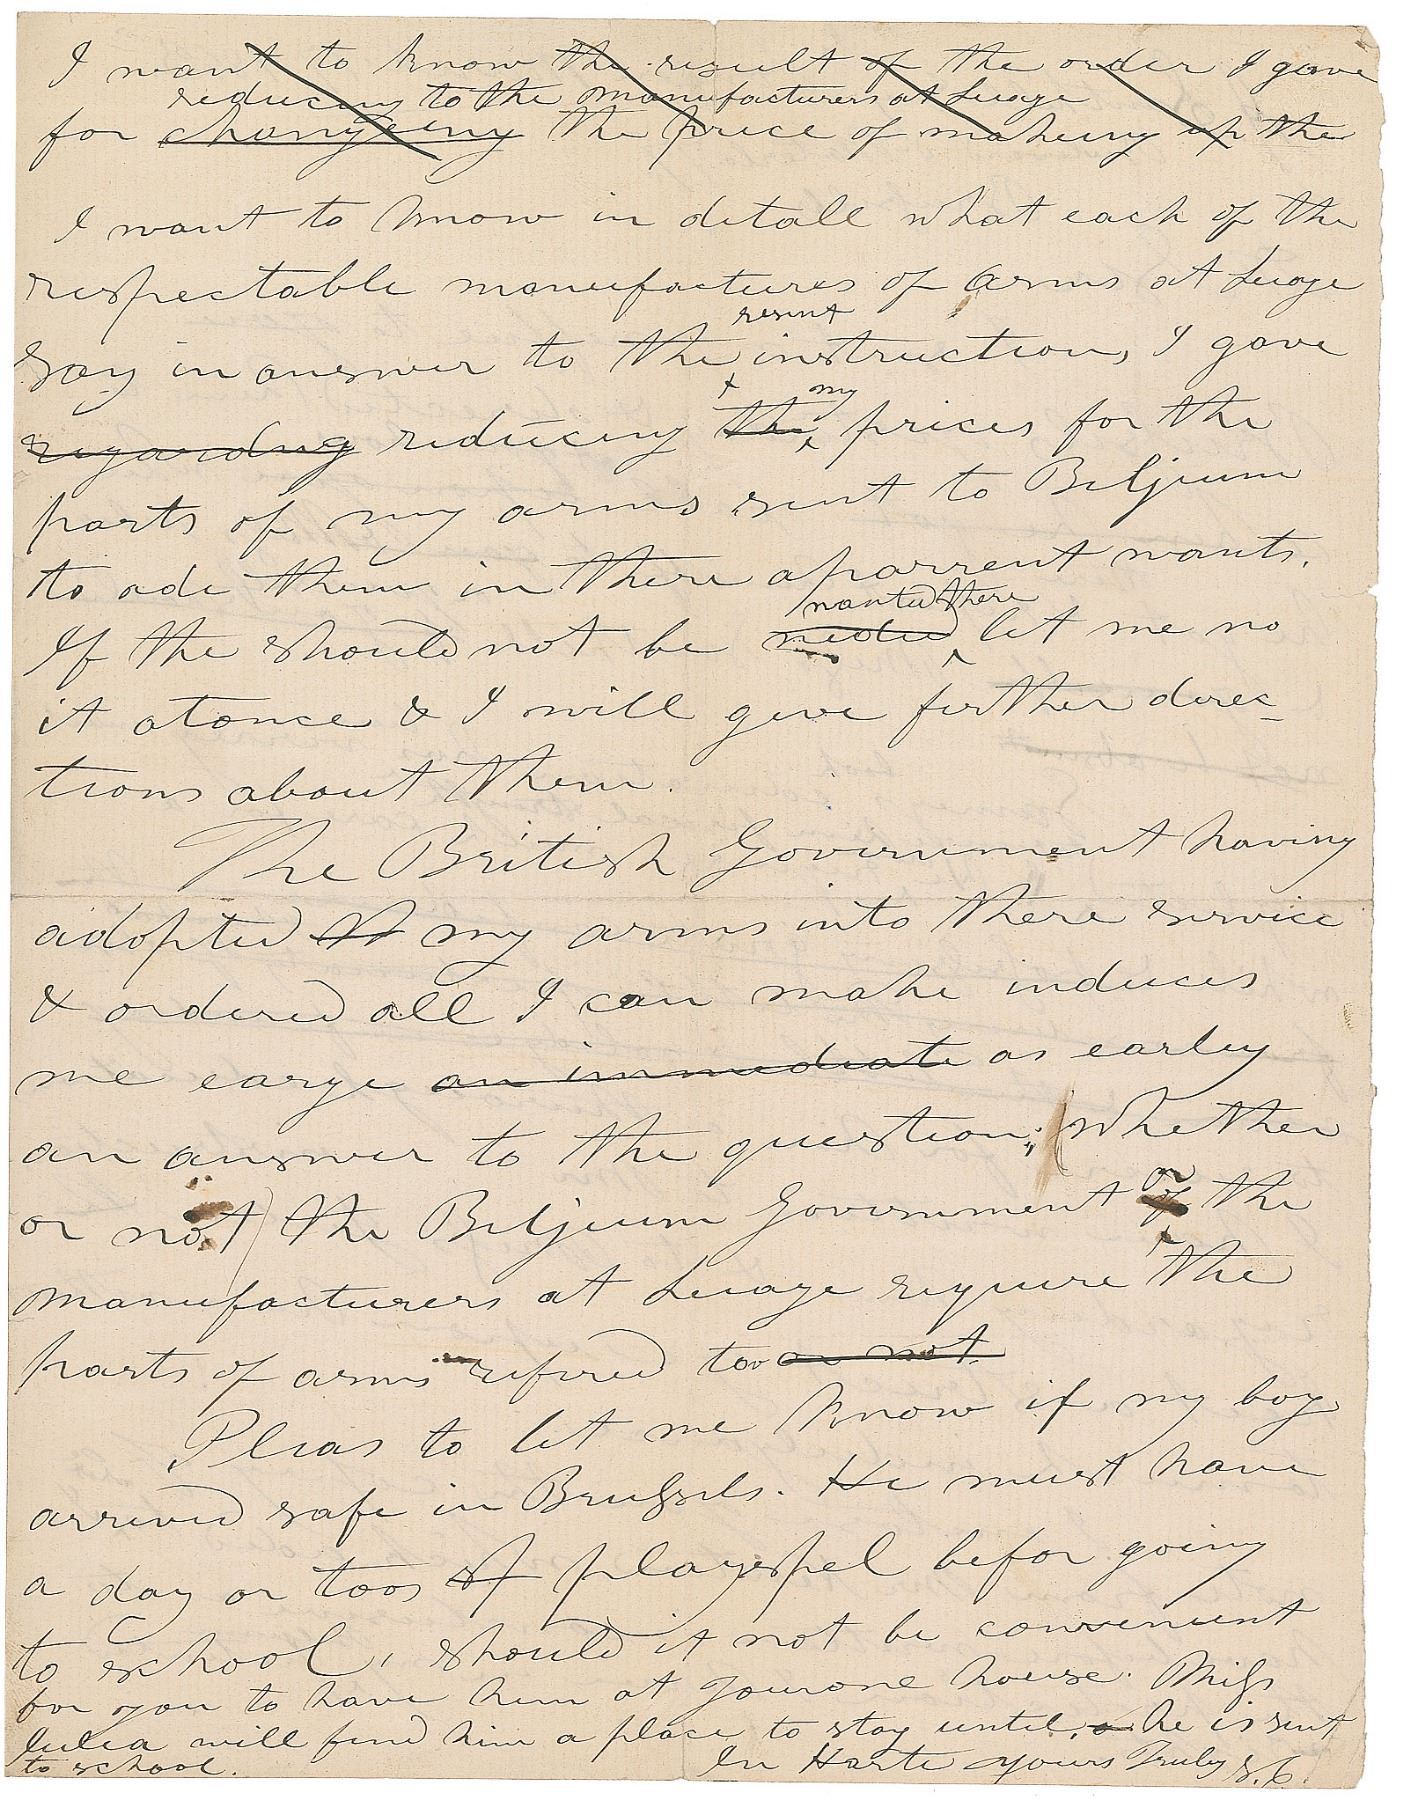 I want to know the result of the order I gave
reducing to the manufacturers at Luage
for changeing the price of makeing up the
I want to know in detall what each of the
respectable manufactures of arms at Luage
resint
say in answer to the instructions I gave
my
regarding reducing the prices for the
parts of my arms sent to Beljium
to ade them in there aparrent wants.
wanted there
If the should not be neded let me no
it atonce & I will give further direc-
tions about them.
The British Government having
adopted my arms into there service
& ordered all I can make induces
me earge an immediate as earley
an answer to the question; (whether
or
or not) the Beljium Government of the
manufacturers at Luage require the
parts of arms refired too or not.
Pleas to let me know if my boy
arrived safe in Brussels. He must have
a day or toos of playspel befor going
to school, should it not be convenient
for you to have him at yourone house. Miss
Julia will find him a place to stay until he is sent
to school.
In Harte yours Truly S.C.